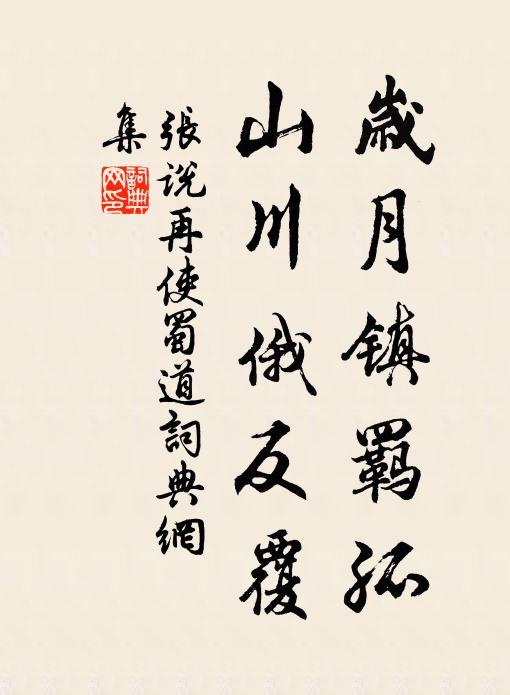 歲月鎮羈孤
山川俄反覆
張說再使蜀道詞典網
集
詞典網印